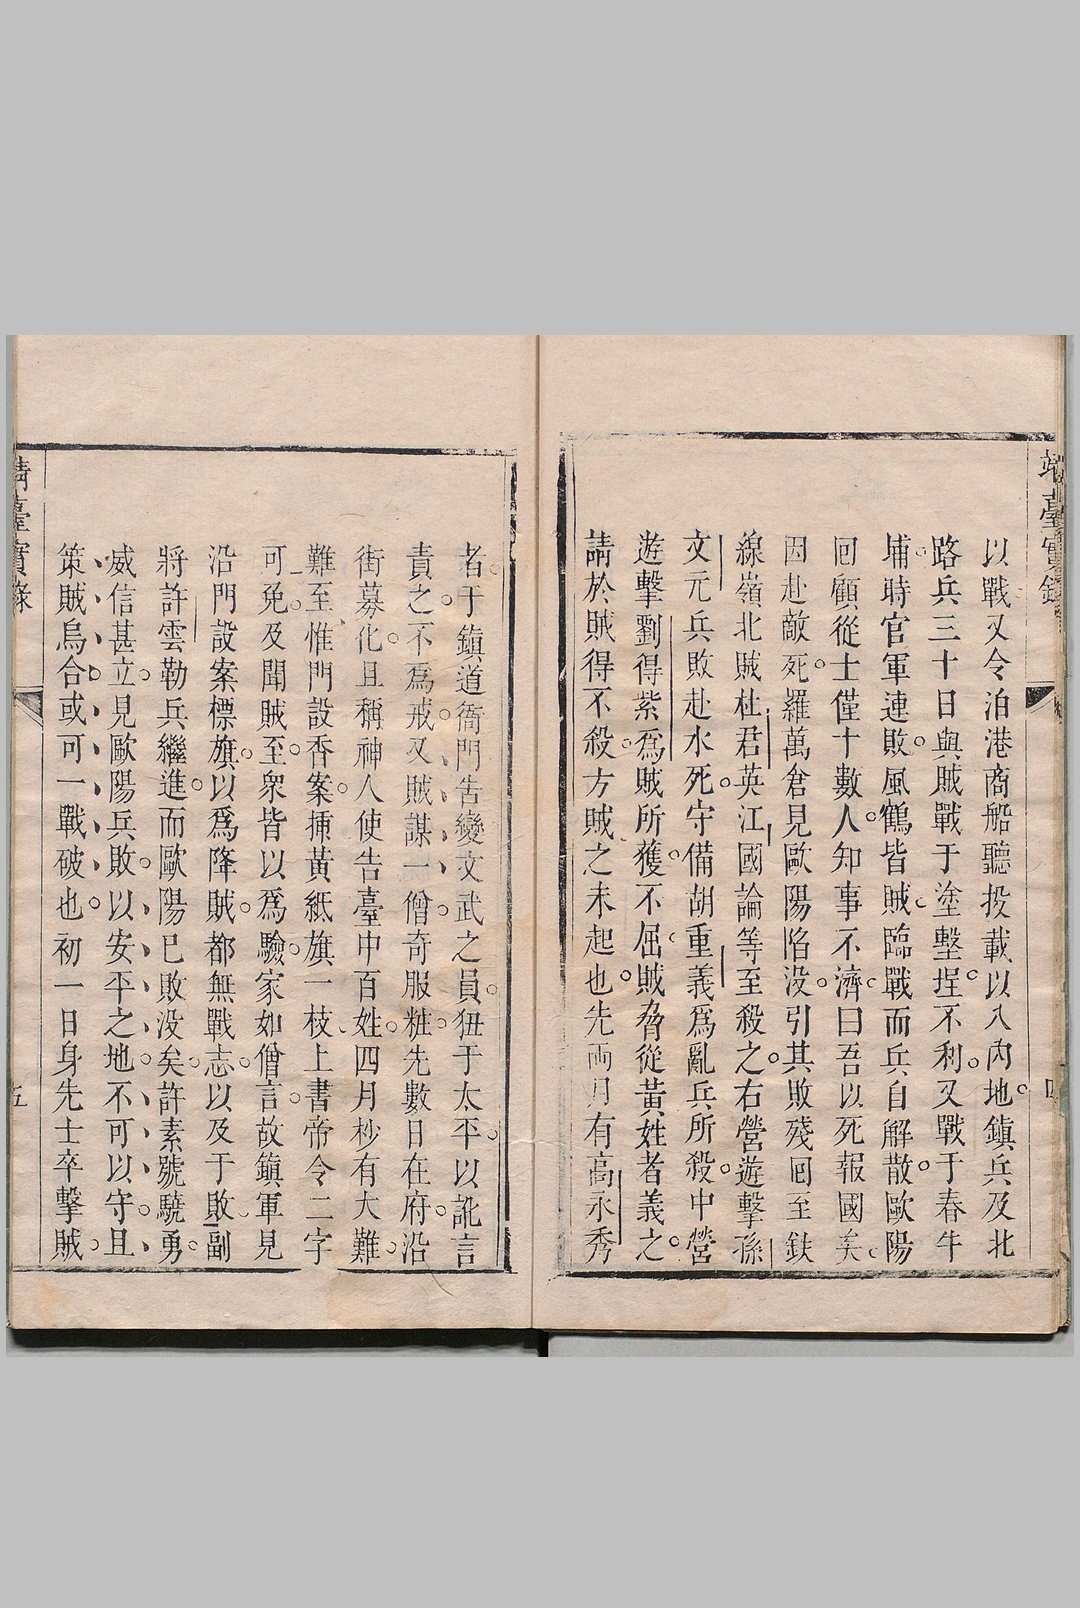 靖臺實錄
以戰又令泊港商船聽投載以入內地鎮兵及北
路兵三十日與賊戰于塗墼埕不利又戰于春牛
埔時官軍連敗風鶴皆賊臨戰而兵自解散歐陽
回顧從士僅十數人知事不濟曰吾以死報國矣
因赴敵死羅萬倉見歐陽陷没引其敗殘回至鉄
線嶺北賊杜君英江國論等至殺之右營遊擊孫
文元兵敗赴水死守備胡重義爲亂兵所殺中營
遊擊劉得紫爲賊所獲不屈賊脅從黃姓者義之
請於賊得不殺方賊之未起也先兩月有高永秀
者于鎮道衙門告變文武之員狃于太平以訛言
責之不爲戒又賊謀一僧奇服粧先數日在府沿
街募化且稱神人使告臺中百姓四月杪有大難
難至惟門設香案插黃紙旗一枝上書帝令二字
可免及聞賊至衆皆以爲驗家如僧言故鎮軍見
沿門設案標旗以爲降賊都無戰志以及于敗副
將許雲勒兵繼進而歐陽已敗没矣許素號驍勇
威信甚立見歐陽兵敗以安平之地不可以守且
策賊烏合或可一戰破也初一日身先士卒擊賊
靖臺實錄
五